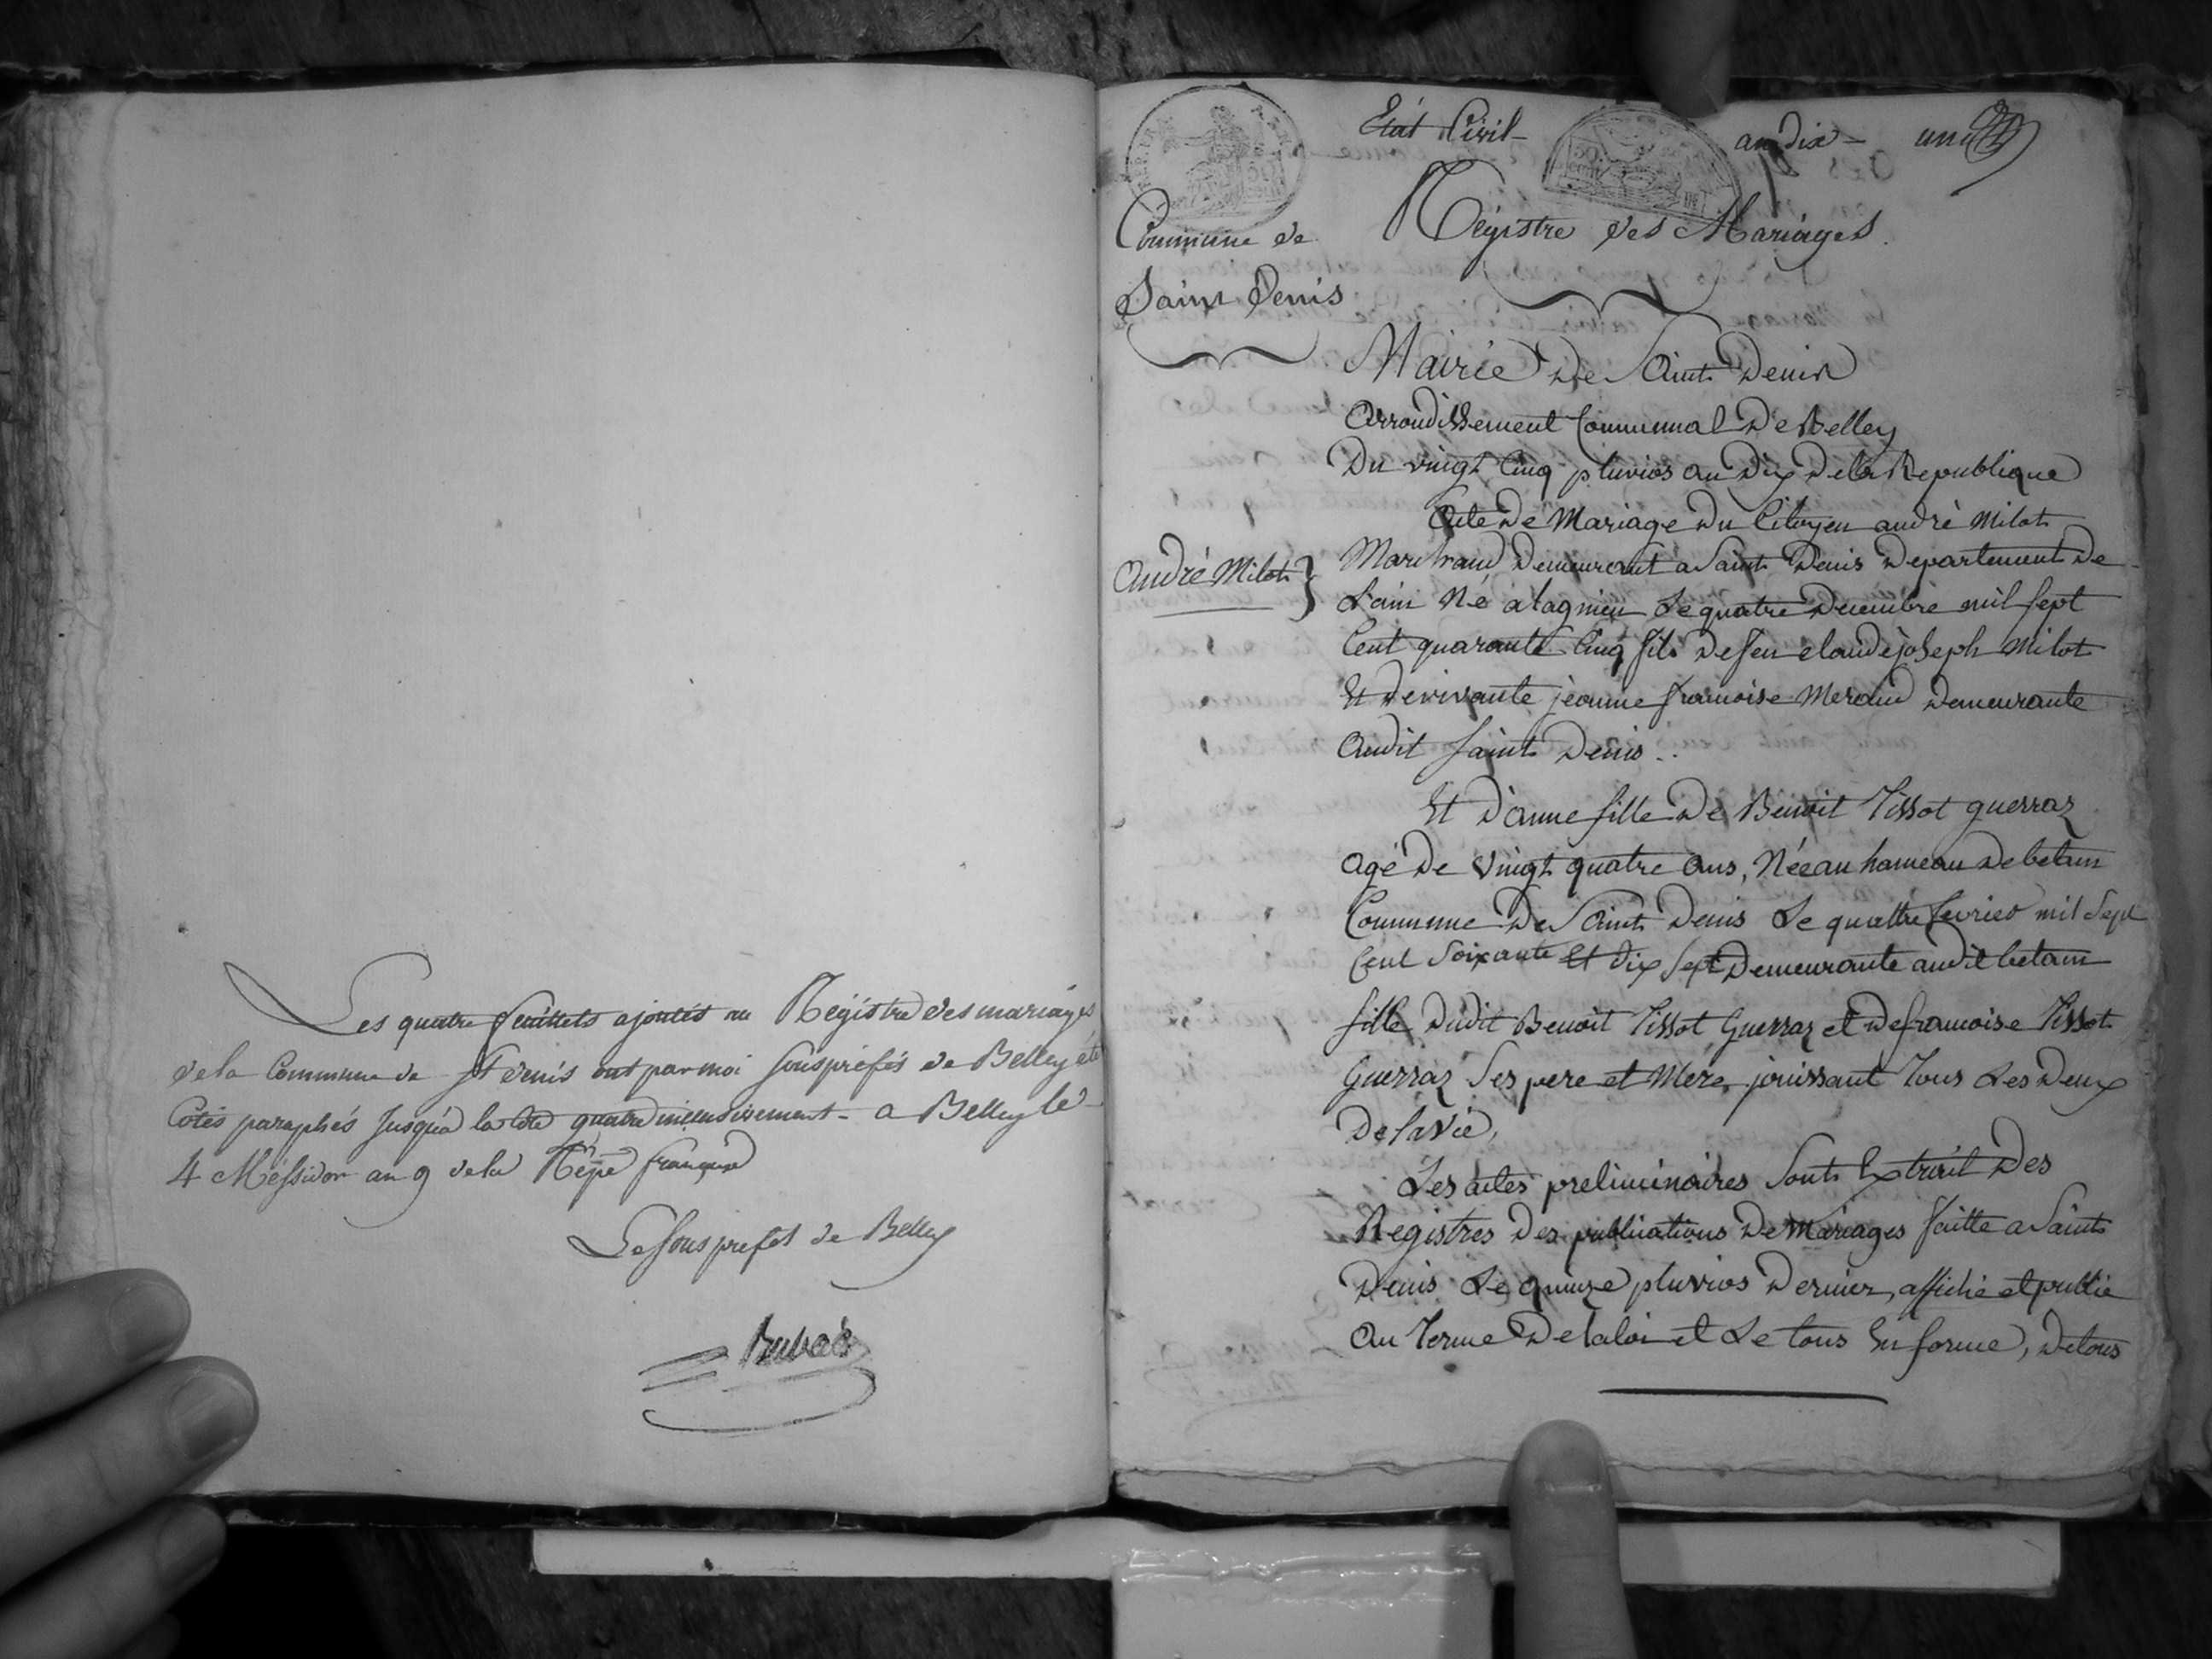 Les quatre feuillets ajoutés au Régistre des mariages
de la Commune de St denis ont par moi souspréfet de Belley été
Cotés paraphés jusqu'à la cote quatre inclusivement - a Belley le
4 Messidor an 9 de la Répe française
Le sous prefet de Belley
Etat Civil - an dix - un
Commune de
Saint Denis
Régistre des Mariages.
Mairie De Saint Denis
Arrondissement Communal De Belley
Du vingt Cinq pluvios an Dix De la Republique
Acte De Mariage Du Citoyen andré Milot
André Milot
Marchand Demeurant a Saint Denis Departement De
L'ain Né a lagnieu Le quatre Decembre mil sept
Cent quarante Cinq fils De feu claude joseph Milot
Et De vivante jeanne francoise Meraud Demeurante
Audit Saint Denis ..
Et D'anne fille De Benoit Tissot guerraz
Agé De Vingt quatre Ans, Née au hameau De betam
Commune De Saint Denis Le quattre fevrier mil Sept
Cent Soixante Et Dix Sept Demeurante audit betam
fille Dudit Benoit Tissot Guerraz et De francoise Tissot
Guerraz Ses pere et Mere, jouissant Tous Les Deux
De la Vie,
Les actes preliminaires Sont Extrait Des
Registres Des publications De Mariages faitte a Saint
Denis Le quinze pluvios Dernier, affiché et publié
Au Terme De la loi et Le tous En forme, De tous